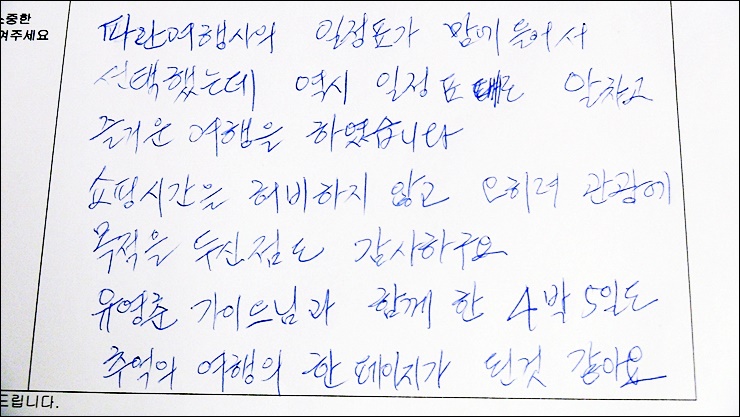 소중한
여주세요
파란여행사의 일정표가 맘에 들어서
선택했는데 역시 일정표대로 알차고
즐거운 여행을 하였습니다
쇼핑시간을 허비하지 않고 오히려 관광에
목적을 두신점도 감사하구요
유영준 가이드님과 함께 한 4박 5일도
추억의 여행의 한 페이지가 된것 같아요
드립니다.